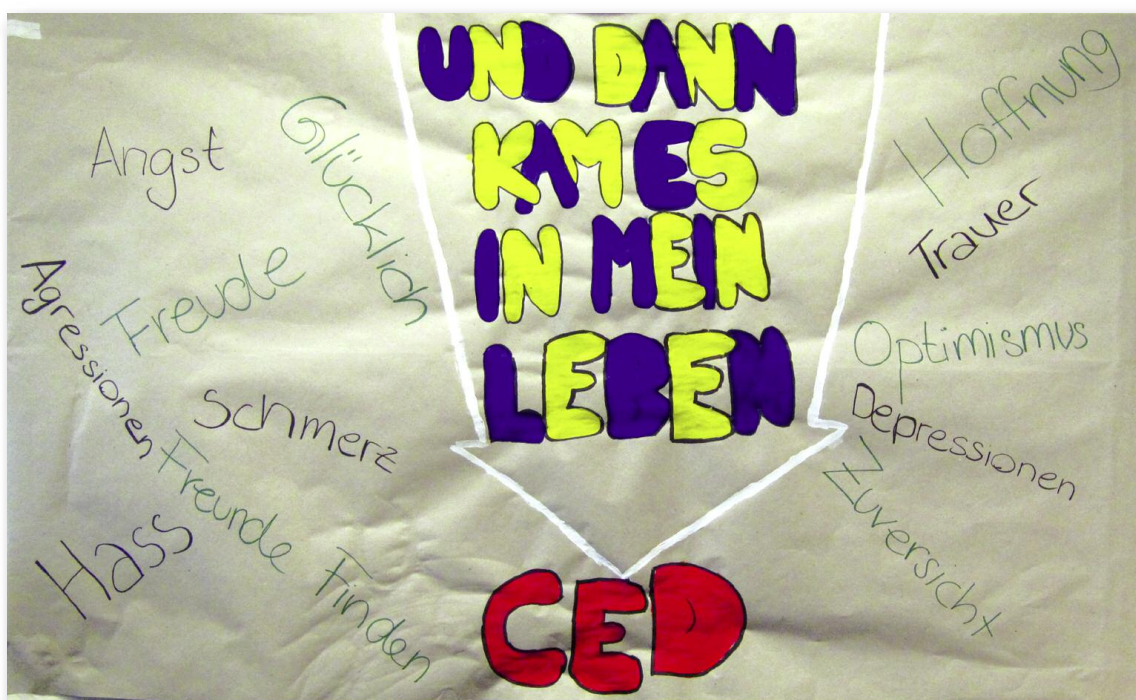 UND DANN
KAM ES
IN MEIN
LEBEN
CED
Angst
Glücklich
Freude
Agressionen
Schmerz
Freunde
Finden
Hass
Hoffnung
Trauer
Optimismus
Depressionen
Zuversicht